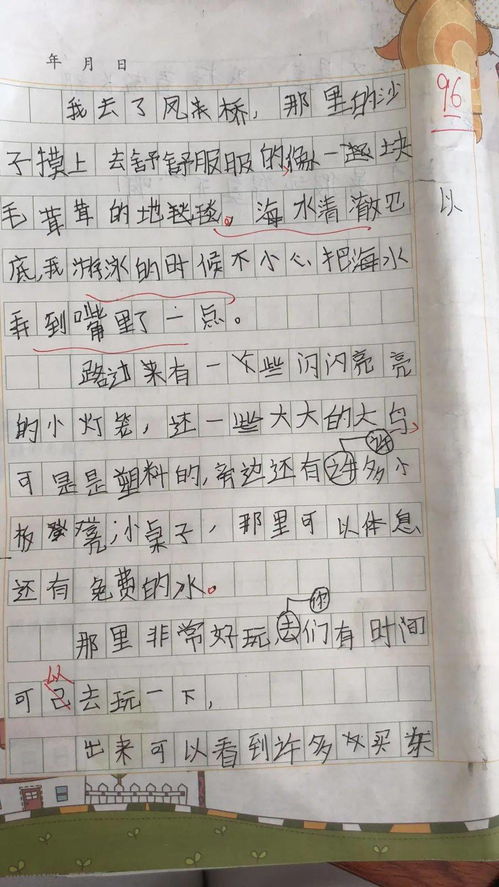 年 月 日
96
我去了凤来桥，那里的沙
子摸上去舒舒服服的像一块
毛茸茸的地毯。海水清澈见
以
底，我游泳的时候不小心把海水
弄到嘴里了一点。
路过来有一些闪闪亮亮
的小灯笼，还一些大大的大鸟
许
可是是塑料的，旁边还有许多小
板凳小桌子，那里可以体息
还有免费的水。
你
那里非常好玩，去们有时间
以
可己去玩一下，
出来可以看到许多买东